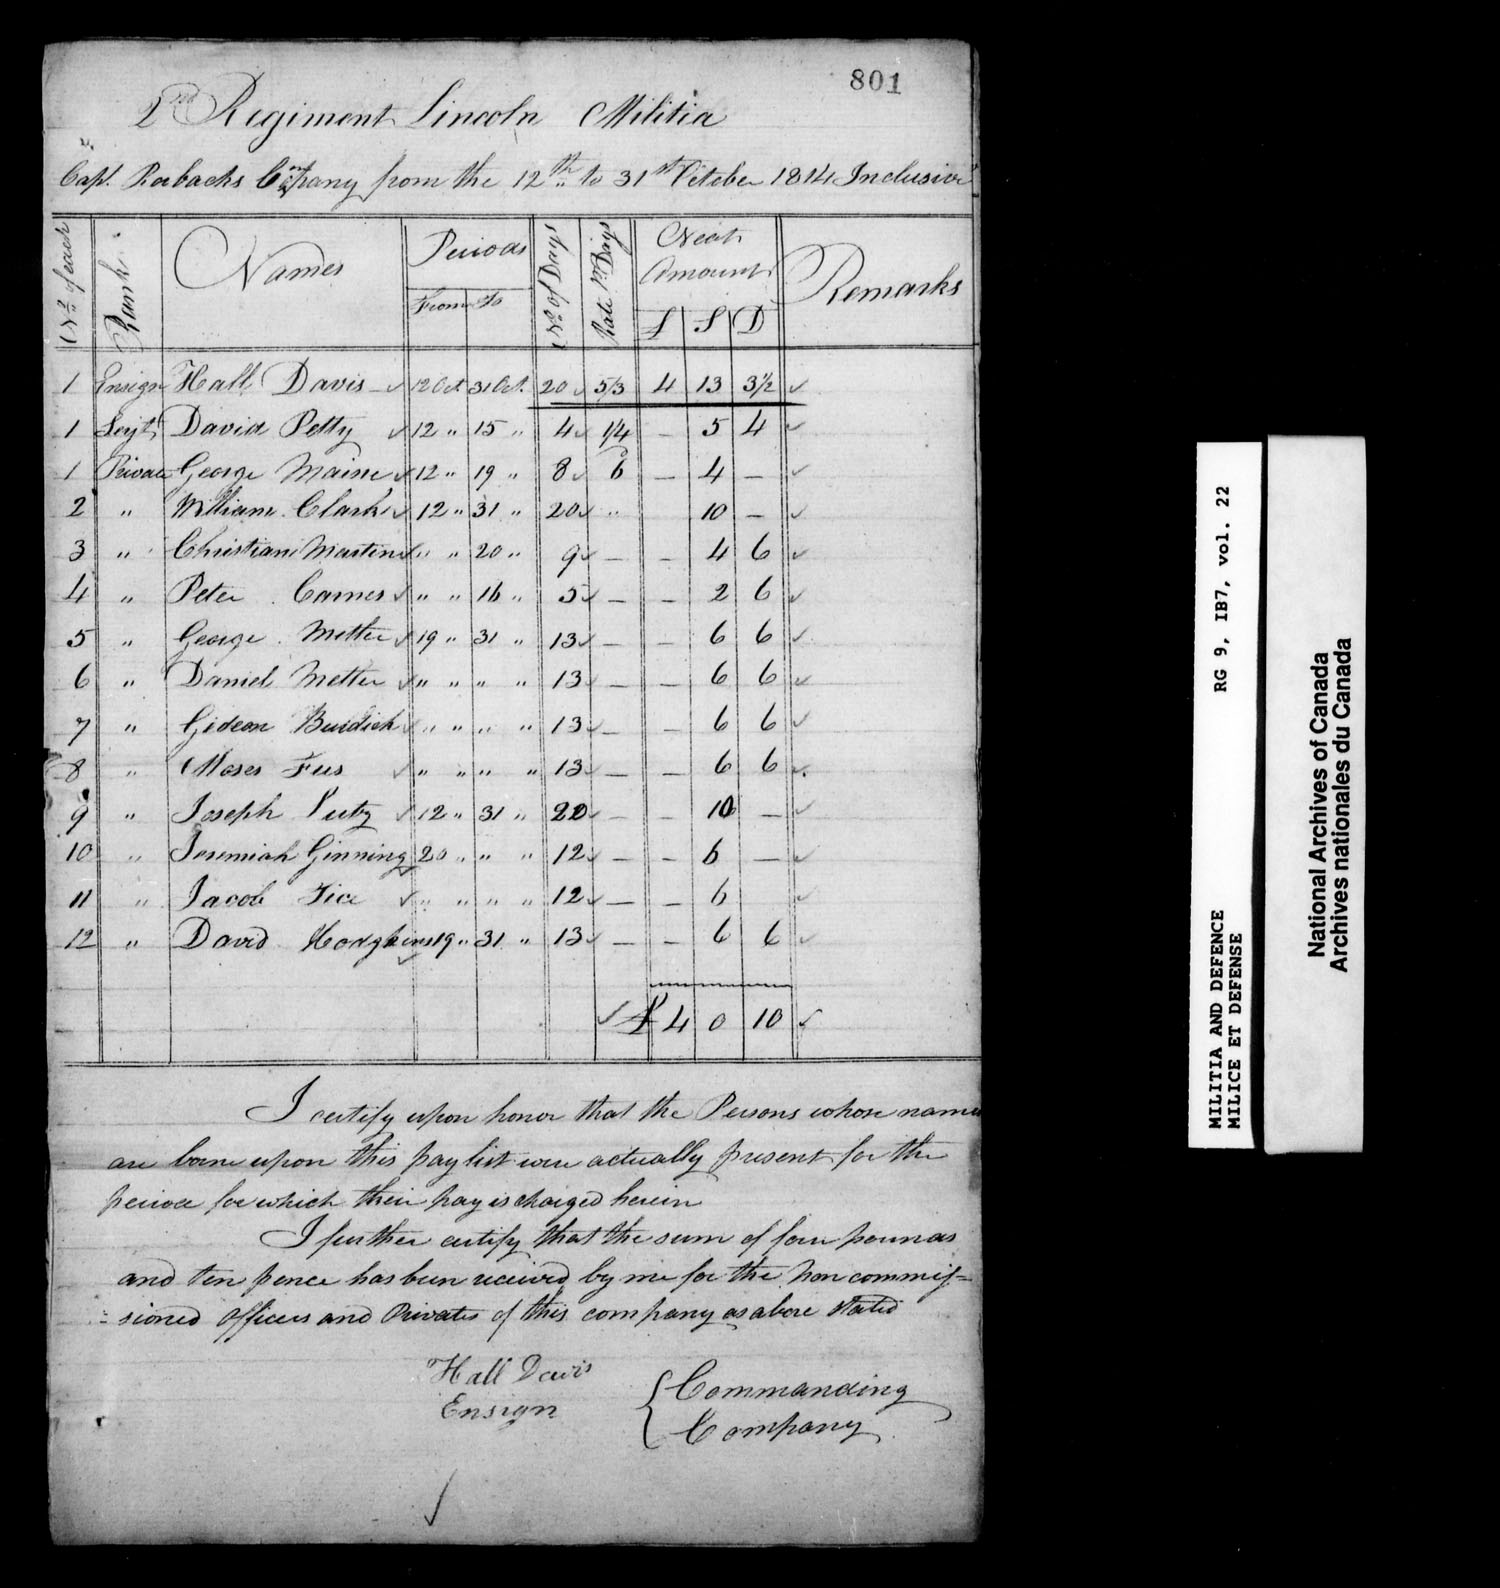 801
2nd Regiment Lincoln Militia
Capt. Rorbacks Company from the 12th to 31st October 1814 Inclusive
No. of each Rank Names Periods From To No. of Days Rate Pr. Days Neat Amount £ S D Remarks
1 Ensign Hall Davis 12 Oct. 31 Oct. 20 5/3 4 13 3½
1 Serjt. David Petty 12 " 15 " 4 1/4 - 5 4
1 Private George Maine 12 " 19 " 8 6 - 4 -
2 " William Clark 12 " 31 " 20 " 10 -
3 " Christian Martin " " 20 " 9 - - 4 6
4 " Peter Carnes " " 16 " 5 - - 2 6
5 " George Metler 19 " 31 " 13 - - 6 6
6 " Daniel Metler " " " " 13 - - 6 6
7 " Gideon Burdick " " " " 13 - - 6 6
8 " Moses " " " " 13 - - 6 6
9 " Joseph 12 " 31 " 20 - - 10 -
10 " Jeremiah Ginning 20 " " " 12 - - 6 -
11 " Jacob Tice " " " " 12 - - 6
12 " David Hodgkins 19 " 31 " 13 - - 6 6
£ 4 0 10
I certify upon honor that the Persons whose names
are born upon this pay list were actually present for the
period for which their pay is charged herein
I further certify that the sum of four pounds
and ten pence has been received by me for the Non commis=
=sioned Officers and Privates of this company as above stated
Hall Davis
Ensign
{ Commanding
Company
MILITIA AND DEFENCE RG 9, IB7, vol. 22
MILICE ET DEFENSE
National Archives of Canada
Archives nationales du Canada